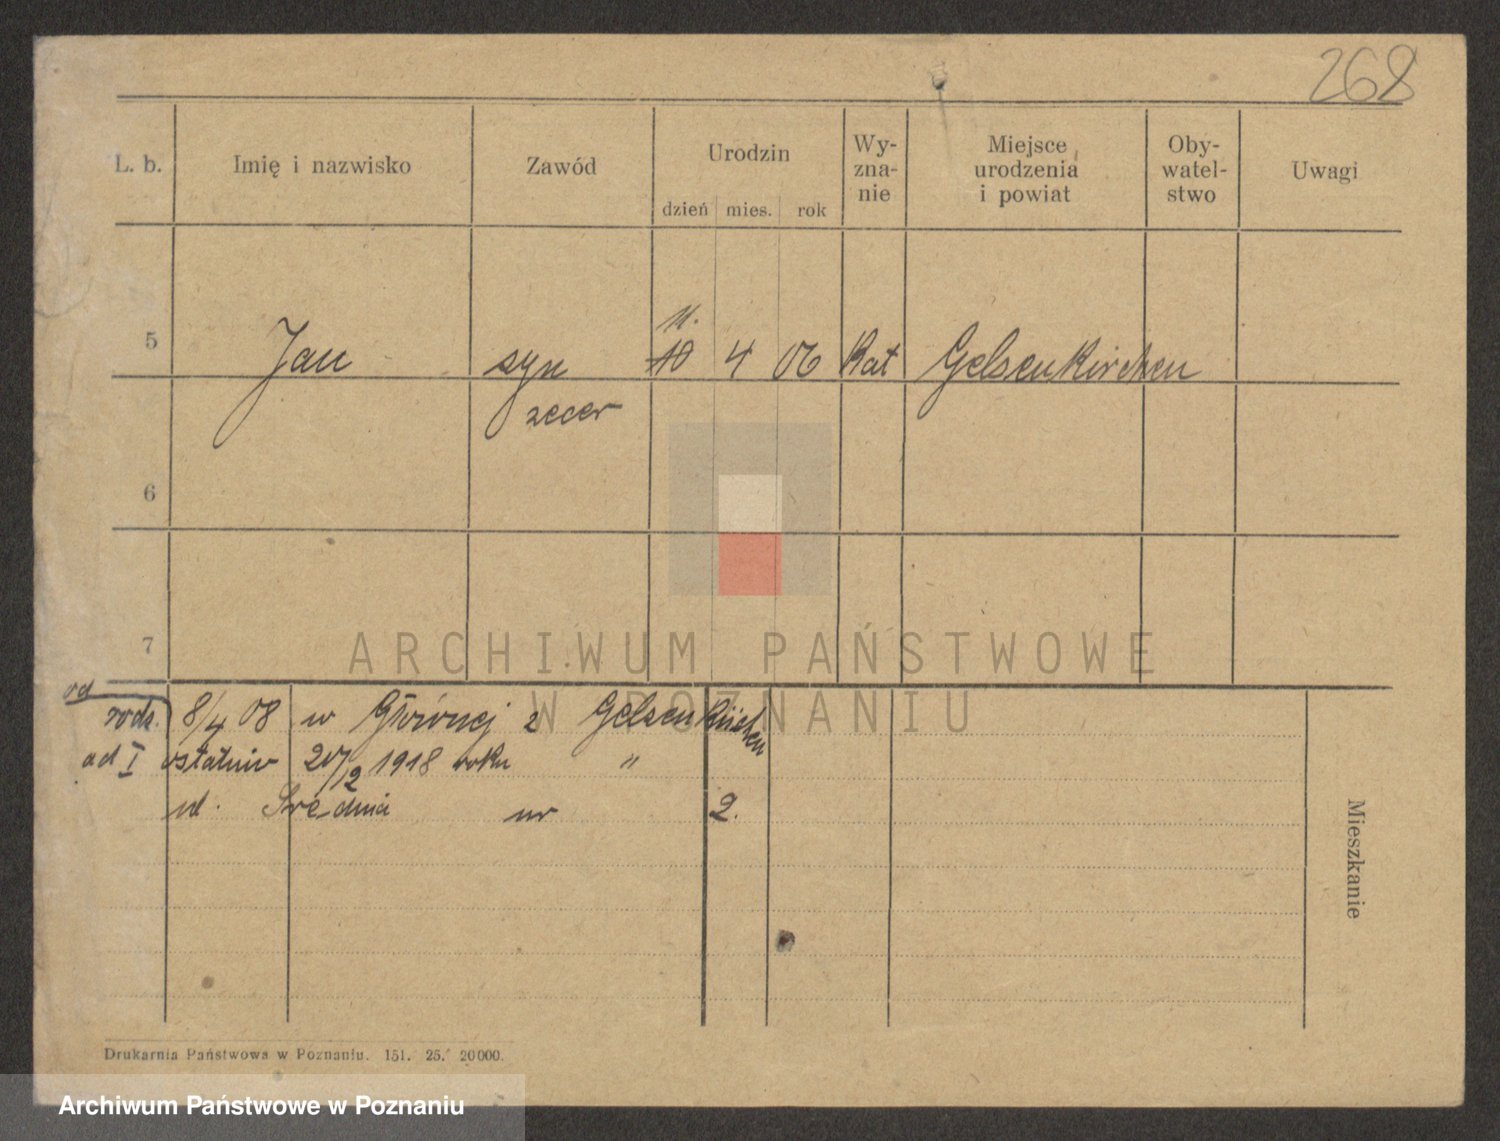 268
L. b. Imię i nazwisko Zawód Urodzin Wy-zna-nie Miejsce urodzenia i powiat Oby-watel-stwo Uwagi
dzień mies. rok
11.
5 Jan syn 10 4 06 Kat Gelsenkirchen
zecer
6
7
ARCHIWUM PAŃSTWOWE
W POZNANIU
od
rodz. 8/4 08 w Głównej z Gelsenkirchen
od I ostatnio 20/12 1918 roku "
ul. Średnia nr 2.
Mieszkanie
Drukarnia Państwowa w Poznaniu. 151. 25. 20000.
Archiwum Państwowe w Poznaniu